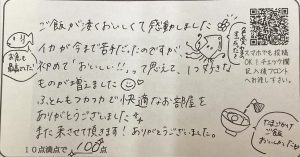 ご飯が凄くおいしくて感動しました
イカが今まで苦手だったのですが
初めて"おいしい!!"って思えて、1つ好きな
ものが増えました
ふとんもフカフカで快適なお部屋を
ありがとうございました
また来させて頂きます!ありがとうございました。
10点満点で 100点
お魚も
最高でした!
スマホでも投稿
OK!チェック欄
記入後フロント
へお渡し下さい。
たまごかけ
ご飯
おいしかった